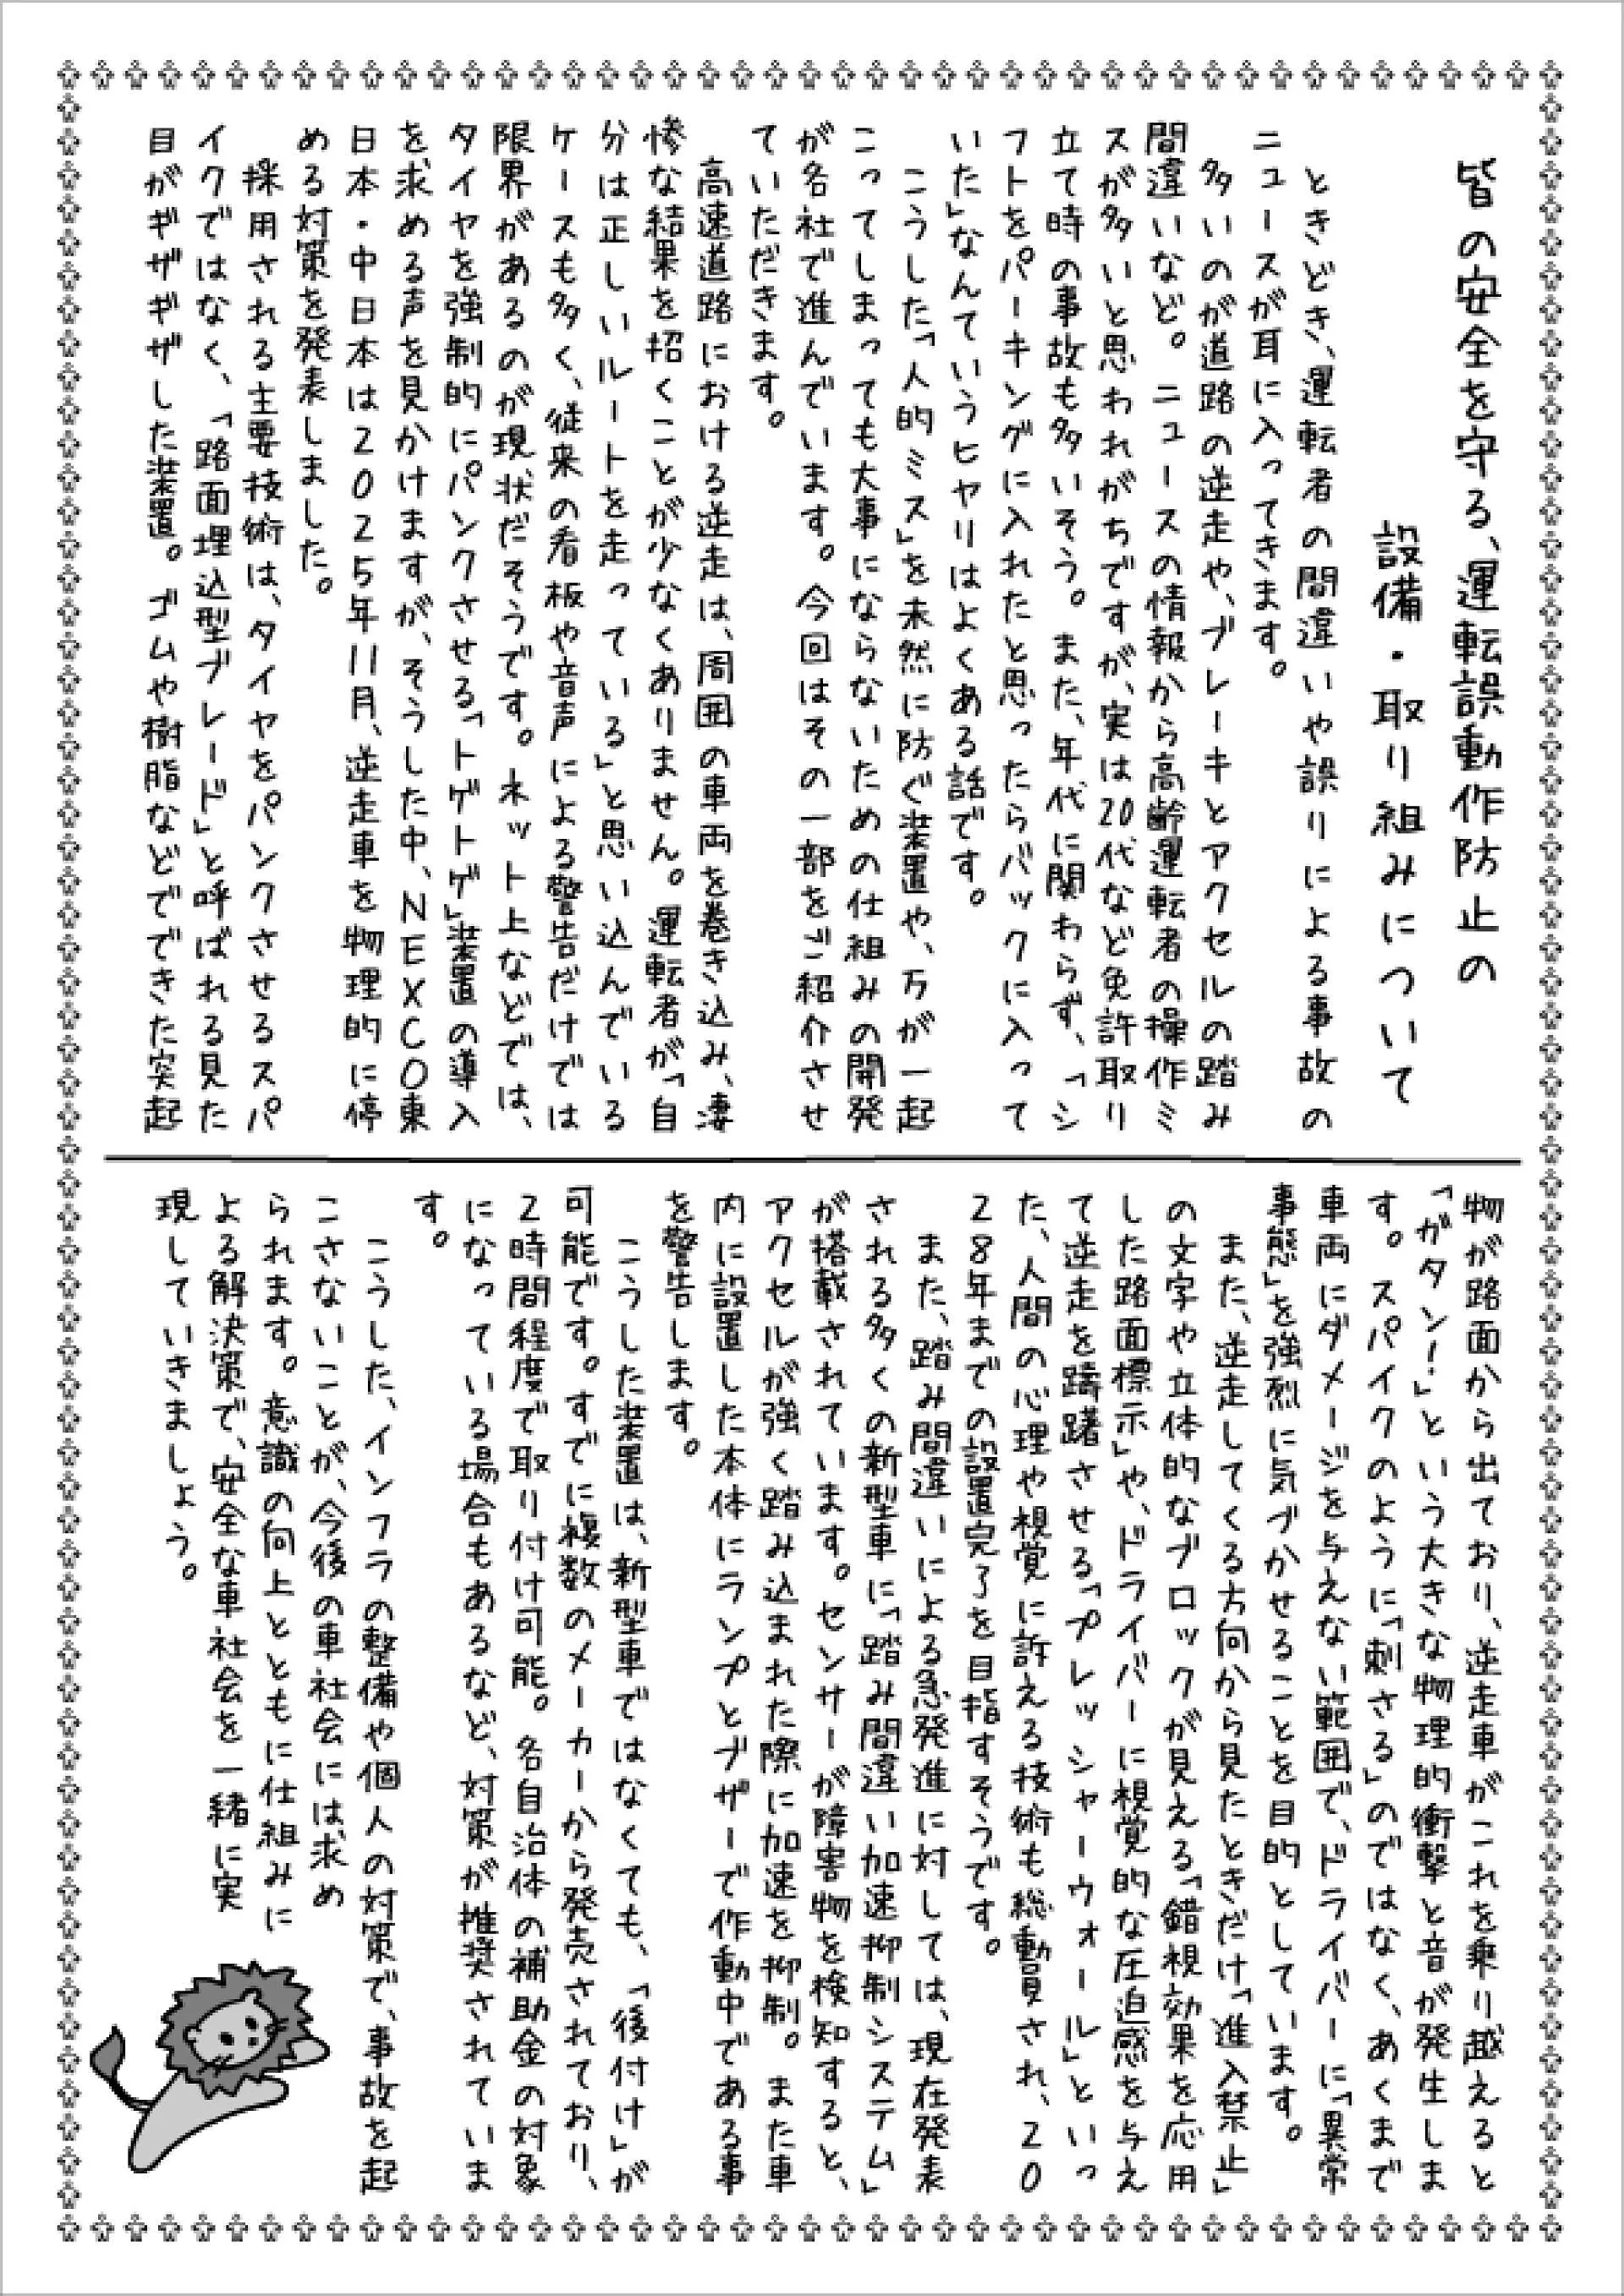 皆の安全を守る、運転誤動作防止の
設備・取り組みについて
ときどき、運転者の間違いや誤りによる事故の
ニュースが耳に入ってきます。
多いのが道路の逆走や、ブレーキとアクセルの踏み
間違いなど。ニュースの情報から高齢運転者の操作ミ
スが多いと思われがちですが、実は20代など免許取り
立て時の事故も多いそう。また、年代に関わらず、「シ
フトをパーキングに入れたと思ったらバックに入って
いた」なんていうヒヤリはよくある話です。
こうした「人的ミス」を未然に防ぐ装置や、万が一起
こってしまっても大事にならないための仕組みの開発
が各社で進んでいます。今回はその一部をご紹介させ
ていただきます。
高速道路における逆走は、周囲の車両を巻き込み、凄
惨な結果を招くことが少なくありません。運転者が「自
分は正しいルートを走っている」と思い込んでいる
ケースも多く、従来の看板や音声による警告だけでは
限界があるのが現状だそうです。ネット上などでは、
タイヤを強制的にパンクさせる「トゲトゲ」装置の導入
を求める声を見かけますが、そうした中、NEXCO東
日本・中日本は2025年11月、逆走車を物理的に停
める対策を発表しました。
採用される主要技術は、タイヤをパンクさせるスパ
イクではなく、「路面埋込型ブレード」と呼ばれる見た
目がギザギザした装置。ゴムや樹脂などでできた突起
物が路面から出ており、逆走車がこれを乗り越えると
「ガタン！」という大きな物理的衝撃と音が発生しま
す。スパイクのように「刺さる」のではなく、あくまで
車両にダメージを与えない範囲で、ドライバーに「異常
事態」を強烈に気づかせることを目的としています。
また、逆走してくる方向から見たときだけ「進入禁止」
の文字や立体的なブロックが見える「錯視効果を応用
した路面標示」や、ドライバーに視覚的な圧迫感を与え
て逆走を躊躇させる「プレッシャーウォール」といっ
た、人間の心理や視覚に訴える技術も総動員され、20
28年までの設置完了を目指すそうです。
また、踏み間違いによる急発進に対しては、現在発表
される多くの新型車に「踏み間違い加速抑制システム」
が搭載されています。センサーが障害物を検知すると、
アクセルが強く踏み込まれた際に加速を抑制。また車
内に設置した本体にランプとブザーで作動中である事
を警告します。
こうした装置は、新型車ではなくても、「後付け」が
可能です。すでに複数のメーカーから発売されており、
2時間程度で取り付け可能。各自治体の補助金の対象
になっている場合もあるなど、対策が推奨されていま
す。
こうした、インフラの整備や個人の対策で、事故を起
こさないことが、今後の車社会には、求め
られます。意識の向上とともに仕組みに
よる解決策で、安全な車社会を一緒に実
現していきましょう。